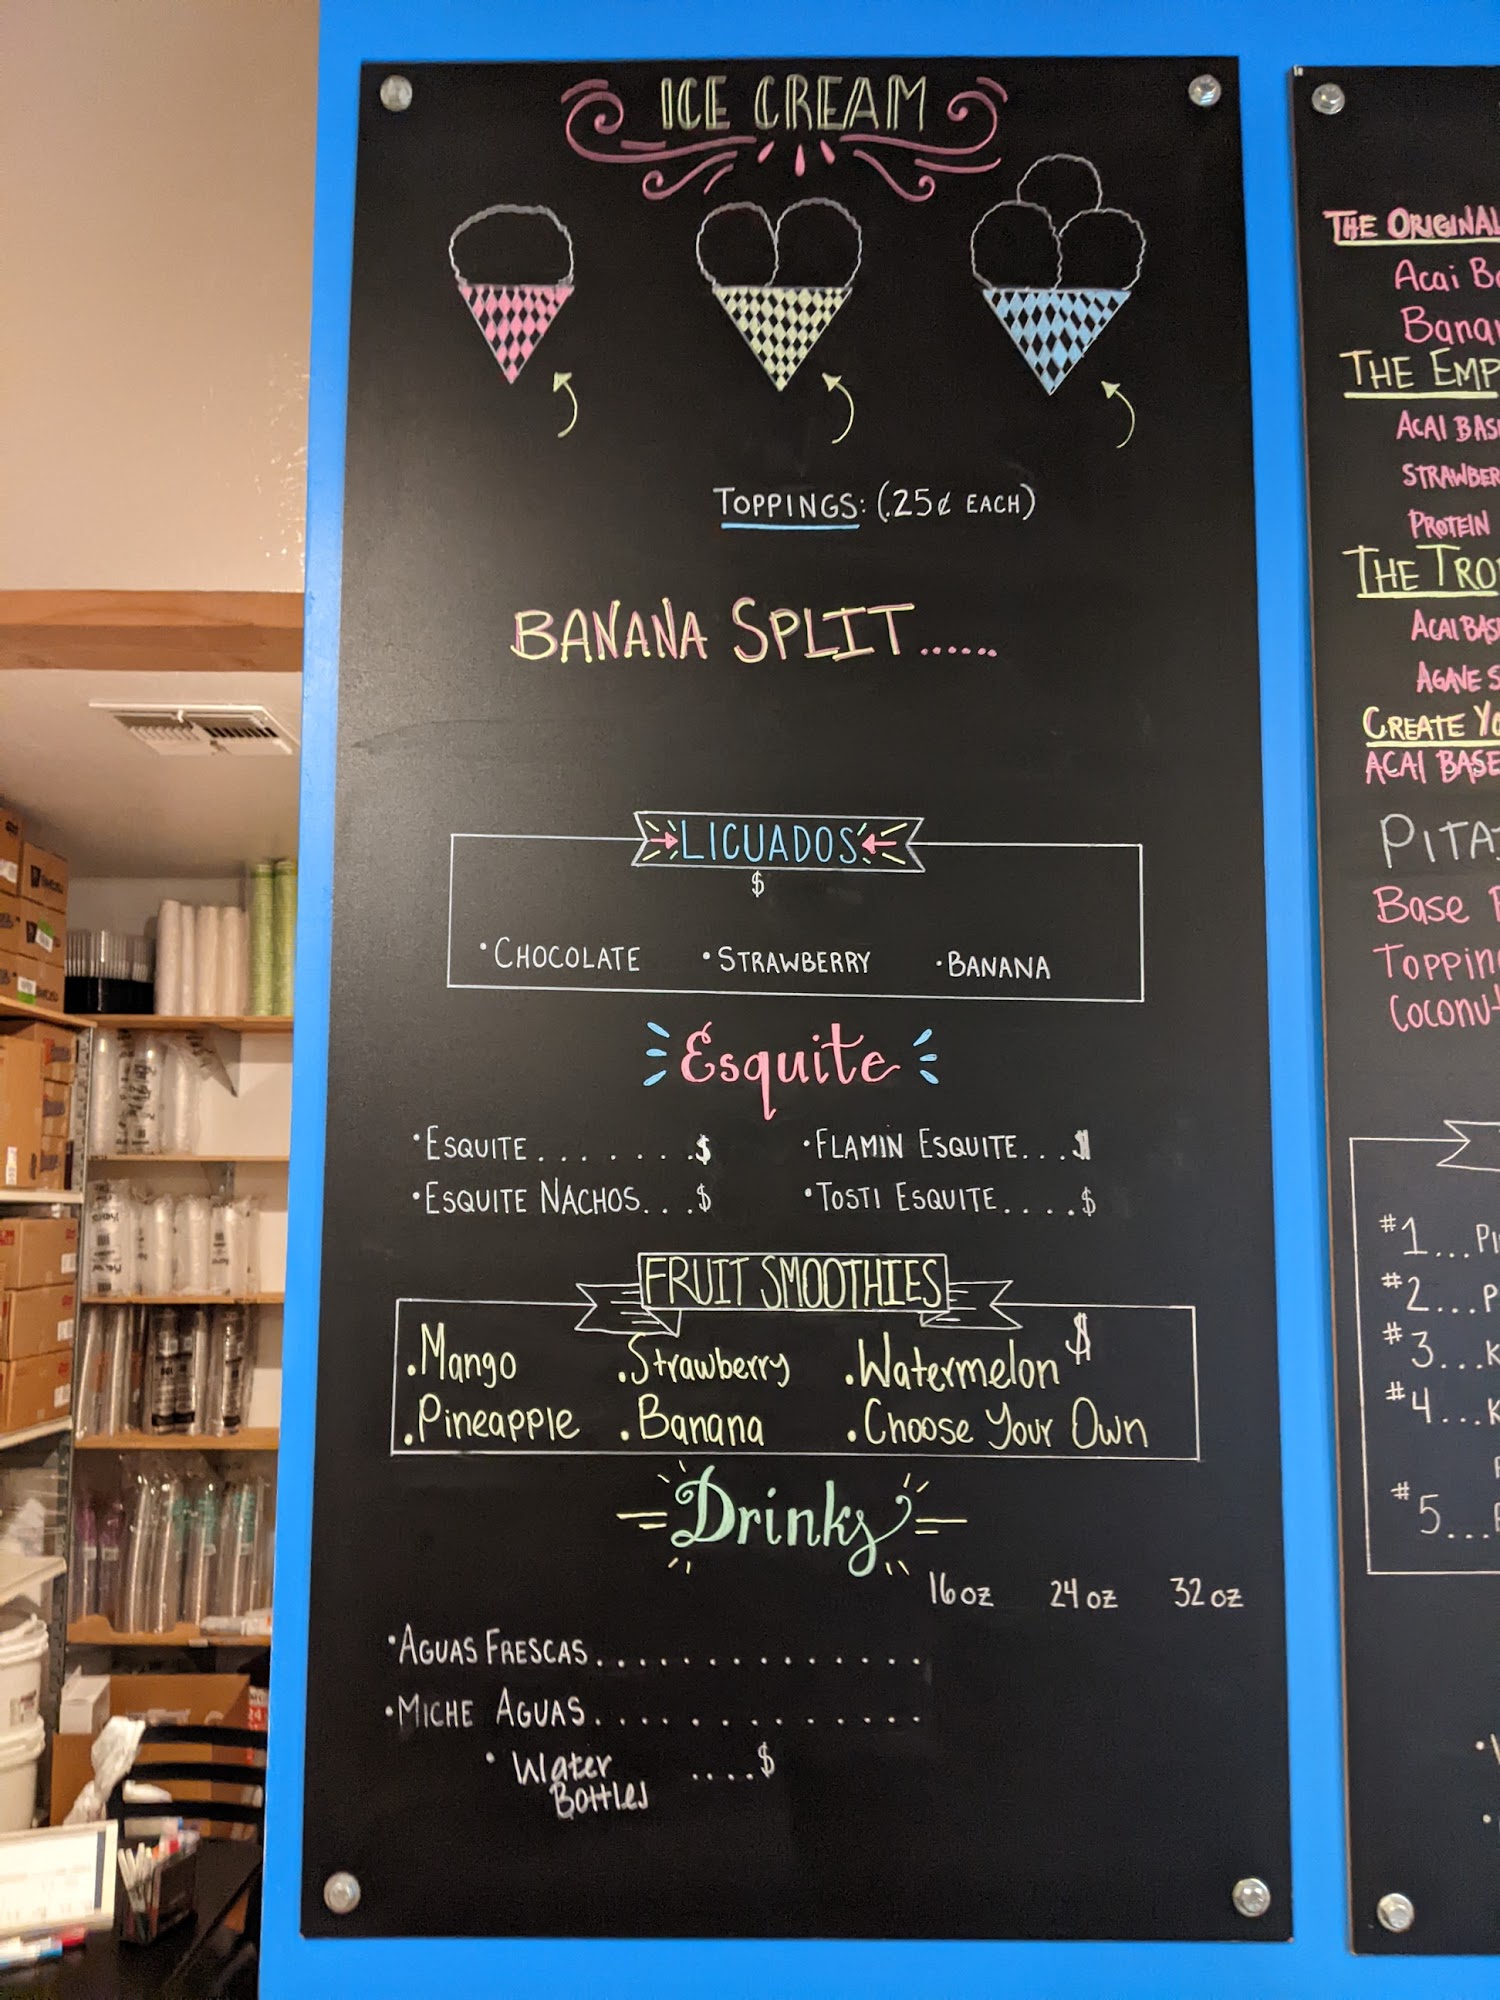 ICE CREAM
TOPPINGS: (.25¢ EACH)
BANANA SPLIT......
LICUADOS
$
•CHOCOLATE •STRAWBERRY •BANANA
Esquite
•ESQUITE.......$ •FLAMIN ESQUITE...$
•ESQUITE NACHOS...$ •TOSTI ESQUITE....$
FRUIT SMOOTHIES
.Mango .Strawberry .Watermelon $
.Pineapple .Banana .Choose Your Own
Drinks
16oz 24oz 32oz
•AGUAS FRESCAS..............
•MICHE AGUAS..............
•Water ....$
Bottles
THE ORIGINAL
Acai
THE
ACAI
PROTEIN
THE
ACAI
AGAVE
CREATE
ACAI BASE
Base
#1...
#2...
#3...
#4...
#5...